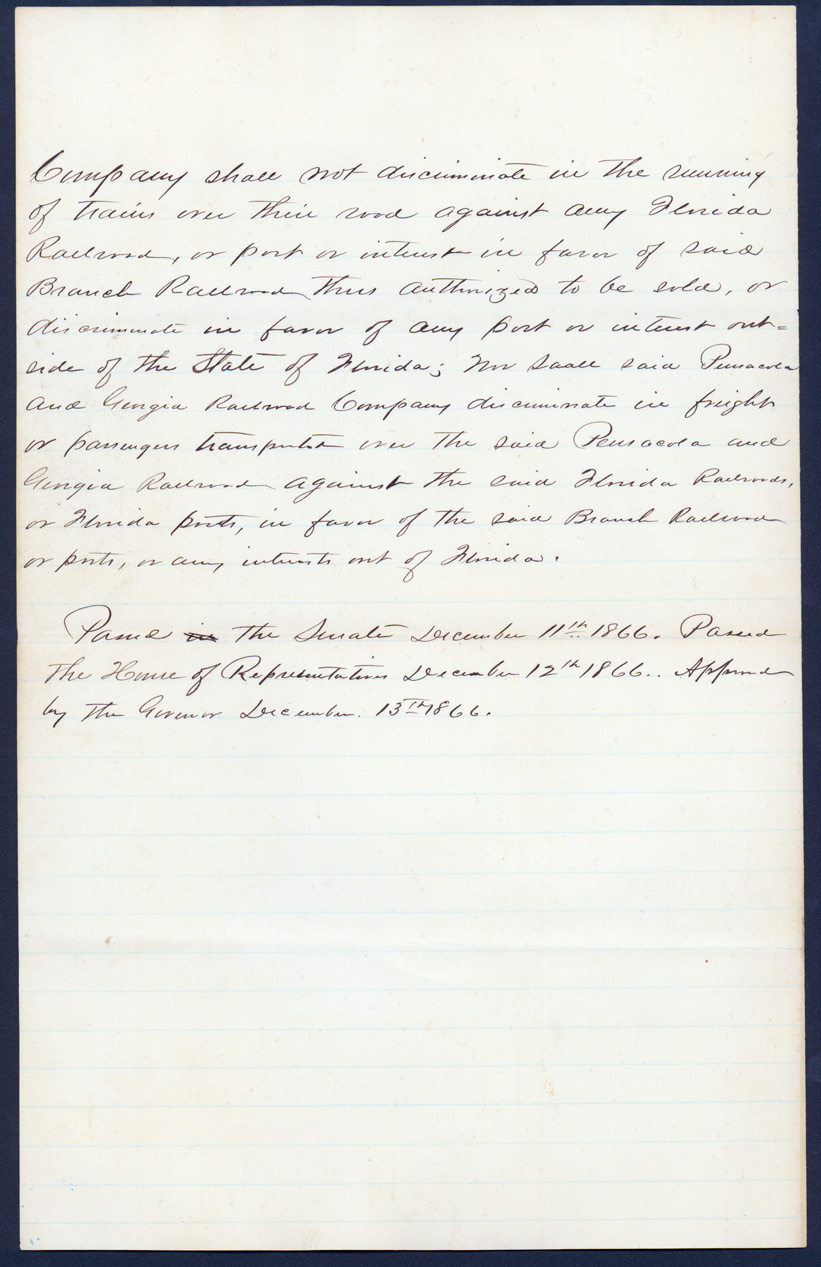 Company shall not discriminate in the running
of trains over their road against any Florida
Railroad, or port or interest in favor of said
Branch Railroad thus authorized to be sold, or
discriminate in favor of any port or interest out=
side of the State of Florida; Nor shall said Pensacola
and Georgia Railroad Company discriminate in freight
or passengers transported over the said Pensacola and
Georgia Railroad against the said Florida Railroads,
or Florida ports, in favor of the said Branch Railroad
or ports, or any interests out of Florida.
Passed in the Senate December 11th 1866. Passed
the House of Representatives December 12th 1866.. Approved
by the Govenor December. 13th 1866.